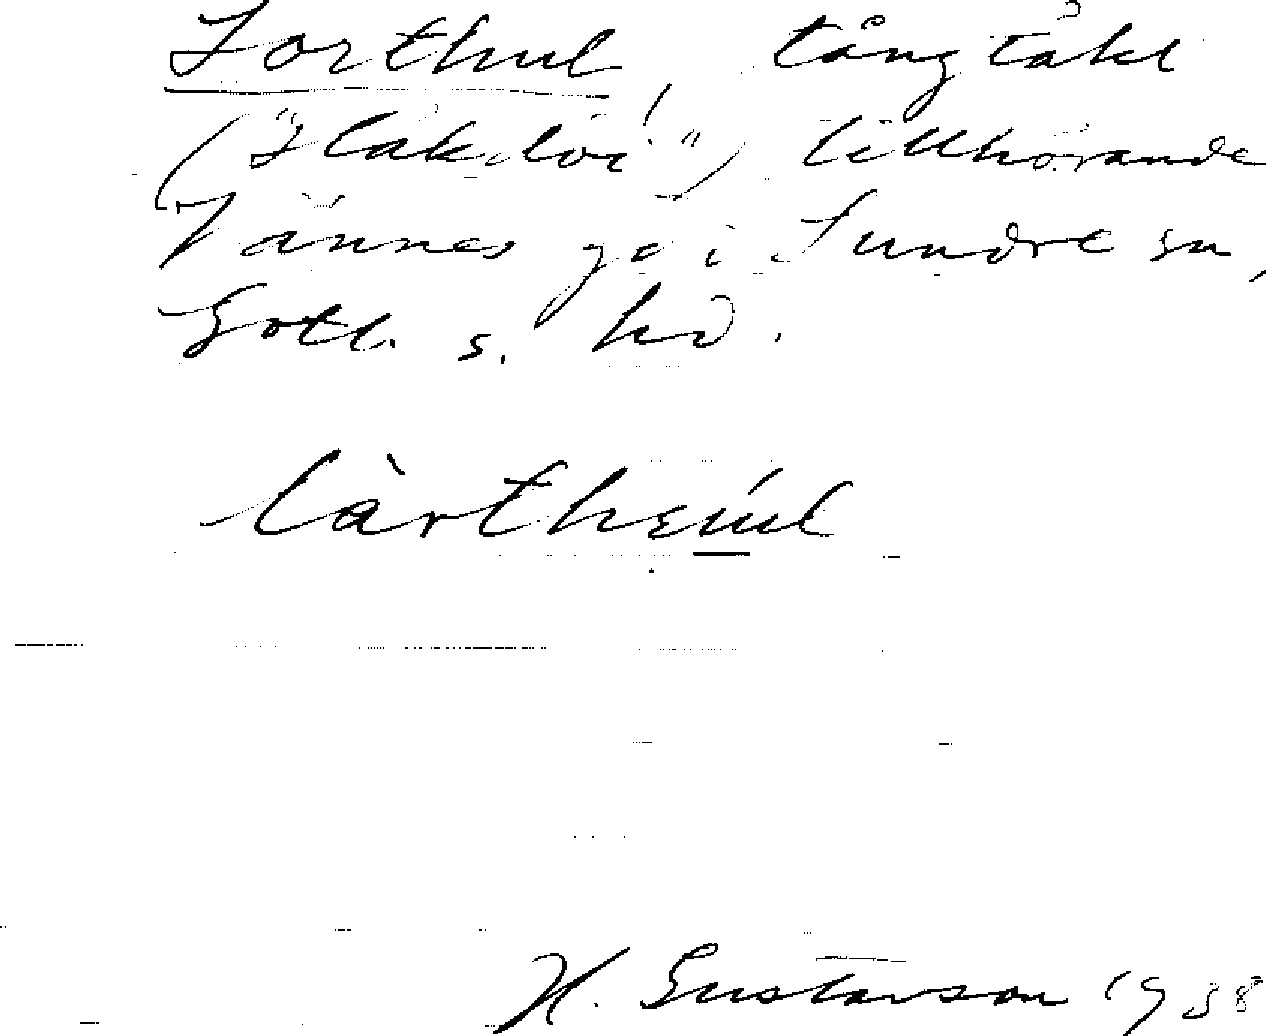 Lorthul, tångtäkt
tillhörande
Vännes gd i Sundre sn,
Gotl. s. hd.
làrthɛúl
H. Gustavson 1938